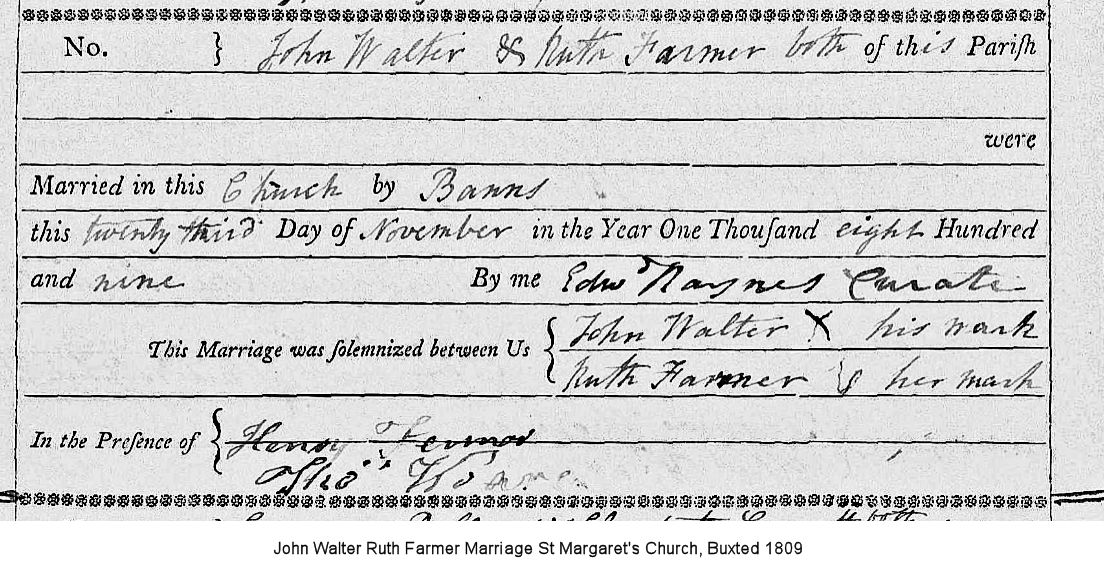 No. } John Walter & Ruth Farmer both of this Pariſh
were
Married in this Church by Banns
this twenty third Day of November in the Year One Thouſand eight Hundred
and nine By me Edwd Raynes Curate
This Marriage was ſolemnized between Us { John Walter X his mark
Ruth Farmer her mark
In the Preſence of { Henry Fermor
Thos
John Walter Ruth Farmer Marriage St Margaret's Church, Buxted 1809